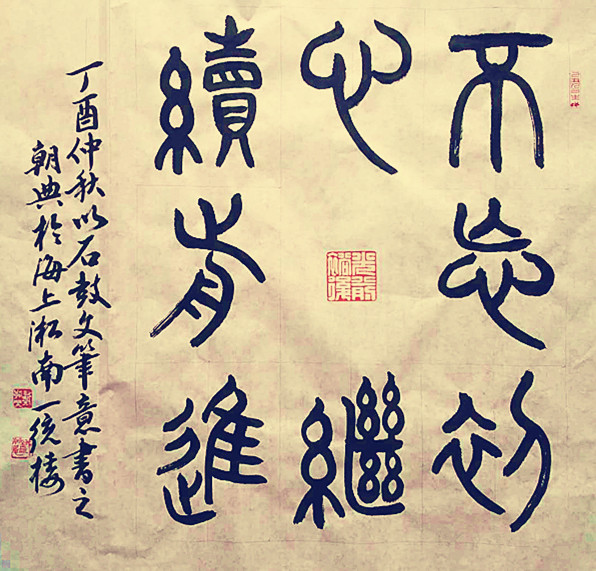 不忘初
心繼
續前進
丁酉仲秋以石鼓文筆意書之
朝典於海上淞南一樓